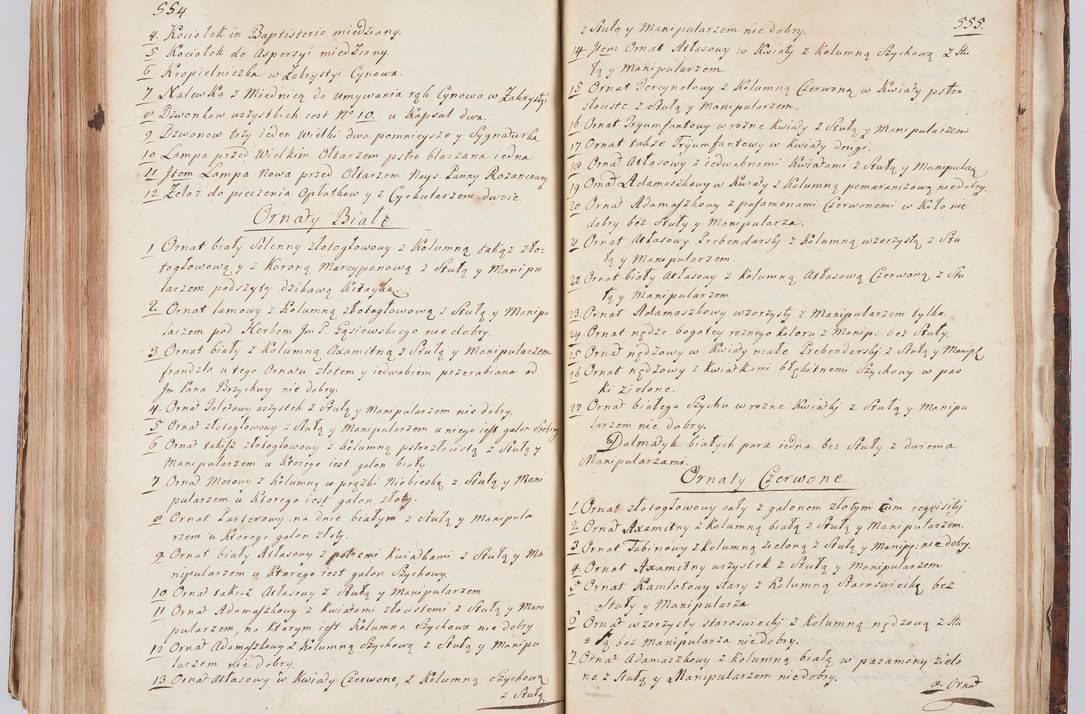 554
4. Kociołek in Baptisterio miedziany.
5 Kociołek do Aspersyi miedziany.
6 Kropielniczka w Zakrystyi Cynowa.
7 Nalewka z Miednicą do umywania rąk Cynowa w Zakrystyi
8 Dzwonkow wszystkich iest No 10. u Kapsał dwa.
9 Dzwonow trzy ieden Wielki dwa pomnieysze y Sygnaturka
10 Lampa przed Wielkim Ołtarzem pstro blaszana iedna
11 Item Lampa Nowa przed Ołtarzem Nays: Panny Rozancowy
12 Zelaz do pieczenia Opłatkow y z Cyrkularzem dwoie.
Ornaty Białe
1 Ornat biały Solenny złotogłowowy z Kolumną takąz zło-
togłowową y z Koroną Marcypanową z Stułą y Manipu
larzem podszyty dzikawą kitayką.
2. Ornat lamowy z Kolumną złotogłowową z Stułą y Manipu
larzem pod Herbem Jm P. Gąsiewskiego nie dobry.
3 Ornat biały z Kolumną Axamitną z Stułą y Manipularzem
frandzla u tego Ornatu złotem y iedwabiem przerabiana od
Jm Pana Przychwy nie dobry.
4. Ornat wszystek z Stułą y Manipularzem nie dobry.
5 Ornat złotogłowowy z Stułą y Manipularzem u niego iest galon Srebrny
6 Ornat takisz złotogłowowy z Kolumną pstrozłocistą z Stułą y
Manipularzem u Ktorego iest galon biały
7 Ornat Morowy z Kolumną w prążki Niebieską z Stułą y Mani
pularzem u Ktorego iest galon złoty.
8 Ornat Parterowy na dnie białym z Stułą y Manipula
rzem u Ktorego galon złoty.
9 Ornat biały Atłasowy z pstremi Kwiatkami z Stułą y Ma
nipularzem u Ktorego iest galon Szychowy.
10 Ornat takisz Atłasowy z Stułą y Manipularzem
11 Ornat Adamaszkowy z Kwiatami złocistemi z Stułą y Mani
pularzem, na Ktorym iest Kolumna Szychowa nie dobry
12 Ornat Adamaszkowy z Kolumną Szychową z Stułą y Manipu
larzem nie dobry.
13 Ornat Atłasowy w Kwiaty Czerwone, z Kolumną Szychową
z Stułą
555.
z Stułą y Manipularzem nie dobry.
14 Item Ornat Atłasowy w Kwiaty z Kolumną Szychową z Stu
łą y Manipularzem
15 Ornat Tercynelowy z Kolumną Czerwoną w Kwiaty pstro
złociste z Stułą y Manipularzem.
16 Ornat Tryumfantowy w rozne Kwiaty z Stułą y Manipularzem
17 Ornat takze Tryumfantowy w Kwiaty drugi.
18 Ornat Atłasowy z iedwabnemi Kwiatami z Stułą y Manipularz
19 Ornat Adamaszkowy w Kwiaty z Kolumną pomaranczową nie dobry.
20 Ornat Adamaszkowy z pasamonami Czerwonemi w Koło nie
dobry bez Stuły y Manipularza.
21 Ornat Atłasowy Prebendarski z Kolumną wzorzystą z Stu
łą y Manipularzem.
22 Ornat biały Atłasowy z Kolumną Atłasową Czerwoną z Stu
łą y Manipularzem
23. Ornat Adamaszkowy wzorzysty z Manipularzem tylko.
24. Ornat nędze bogatey roznego koloru z Manip: bez Stuły.
25 Ornat nędzowy w Kwiaty małe Prebendarski z Stułą y Manipul
26 Ornat nędzowy z Kwiatkami błękitnemi Szychowy w pas
ki zielone.
27 Ornat białego Szychu w rozne Kwiatki z Stułą y Manipu
larzem nie dobry.
Dalmatyk białych para iedna bez Stuły z dwiema
Manipularzami.
Ornaty Czerwone.
1 Ornat złotogłowowy cały z galonem złotym cum requisitij
2 Ornat Axamitny z Kolumną białą z Stułą y Manipularzem.
3 Ornat Tabinowy z Kolumną zieloną z Stułą y Manip: nie dobry.
4. Ornat Axamitny wszystek z Stułą y Manipularzem
5 Ornat Kamlotowy Stary z Kolumną Staroswiecką bez
Stuły y Manipularza
6 Ornat wzorzysty staroswiecki z Kolumną nędzową z Stu
łą bez Manipularza nie dobry.
7 Ornat Adamaszkowy z Kolumną białą w paramony zielo
ne z Stułą y Manipularzem nie dobry.
8. Ornat